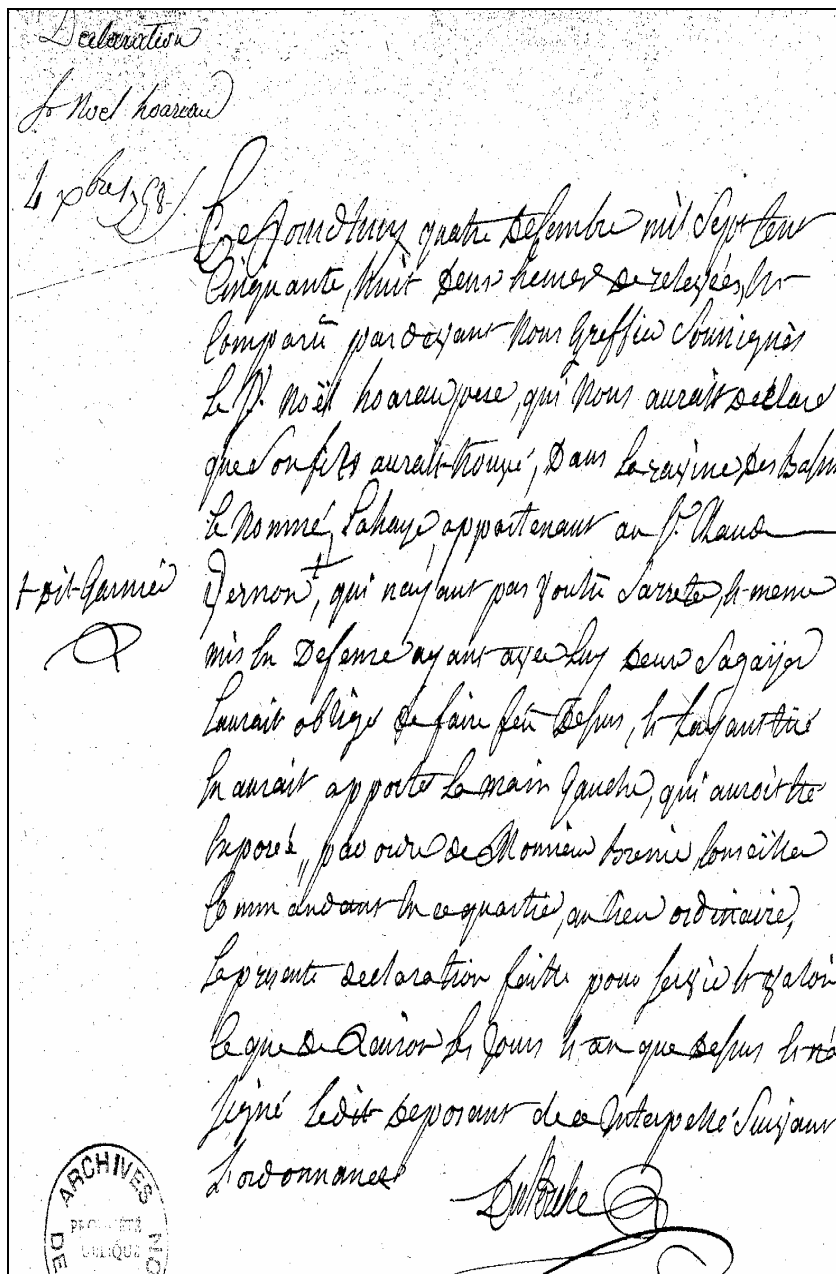 Declaration
Sr Noel hoareau
4 xbre 1758
Ce Jourdhuy quatre Desembre mil Sept Cent
Cinquante, huit deux heures de relevées, Est
Comparû pardevant Nous Greffier Soussignés
Le Sr. Noël hoareau pere, qui Nous aurait declaré
que Son fils aurait trouvé, Dans La ravine des Bassins
Le Nommé, Lahaye, appartenant au Sr.
+ dit Garnié
Vernon +, qui nayant pas voulû Sarreter, et meme
mis En Defense ayant avec Luy deux Sagaÿes
Laurait obligé de faire feu Desus, Et Layant tüé
En aurait apporté La main Gauche, qui auroit Eté
Exposéé, par ordre de Monsieur Brenier Conseiller
Commandant En ce quartier, au Lieu ordinaire,
La presente declaration faitte pour Servir Et valoir
Ce que de Raison Les Jours Et an que desus Et na
Signé Ledit deposant de ce Interpellé Suivant
L'ordonnance
ARCHIVES
PROPRIÉTÉ
PUBLIQUE